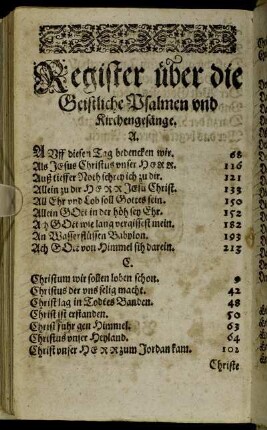 Register über die
Geistliche Psalmen vnd
Kirchengesänge.
A.
AVff diesen Tag bedencken wir. 68
Als Jesus Christus vnser HERR. 116
Auß tieffer Noth schrey ich zu dir. 121
Allein zu dir HERR Jesu Christ. 133
All Ehr vnd Lob soll Gottes sein. 150
Allein GOtt in der höh sey Ehr. 152
Ach GOtt wie lang vergissest mein. 182
An Wasserflüssen Babylon. 193
Ach GOtt von Himmel sih darein. 213
C.
Christum wir sollen loben schon. 9
Christus der vns selig macht. 42
Christ lag in Todtes Banden. 48
Christ ist erstanden. 50
Christ fuhr gen Himmel. 63
Christus vnser Heyland. 64
Christ vnser HERR zum Jordan kam. 102
Christe